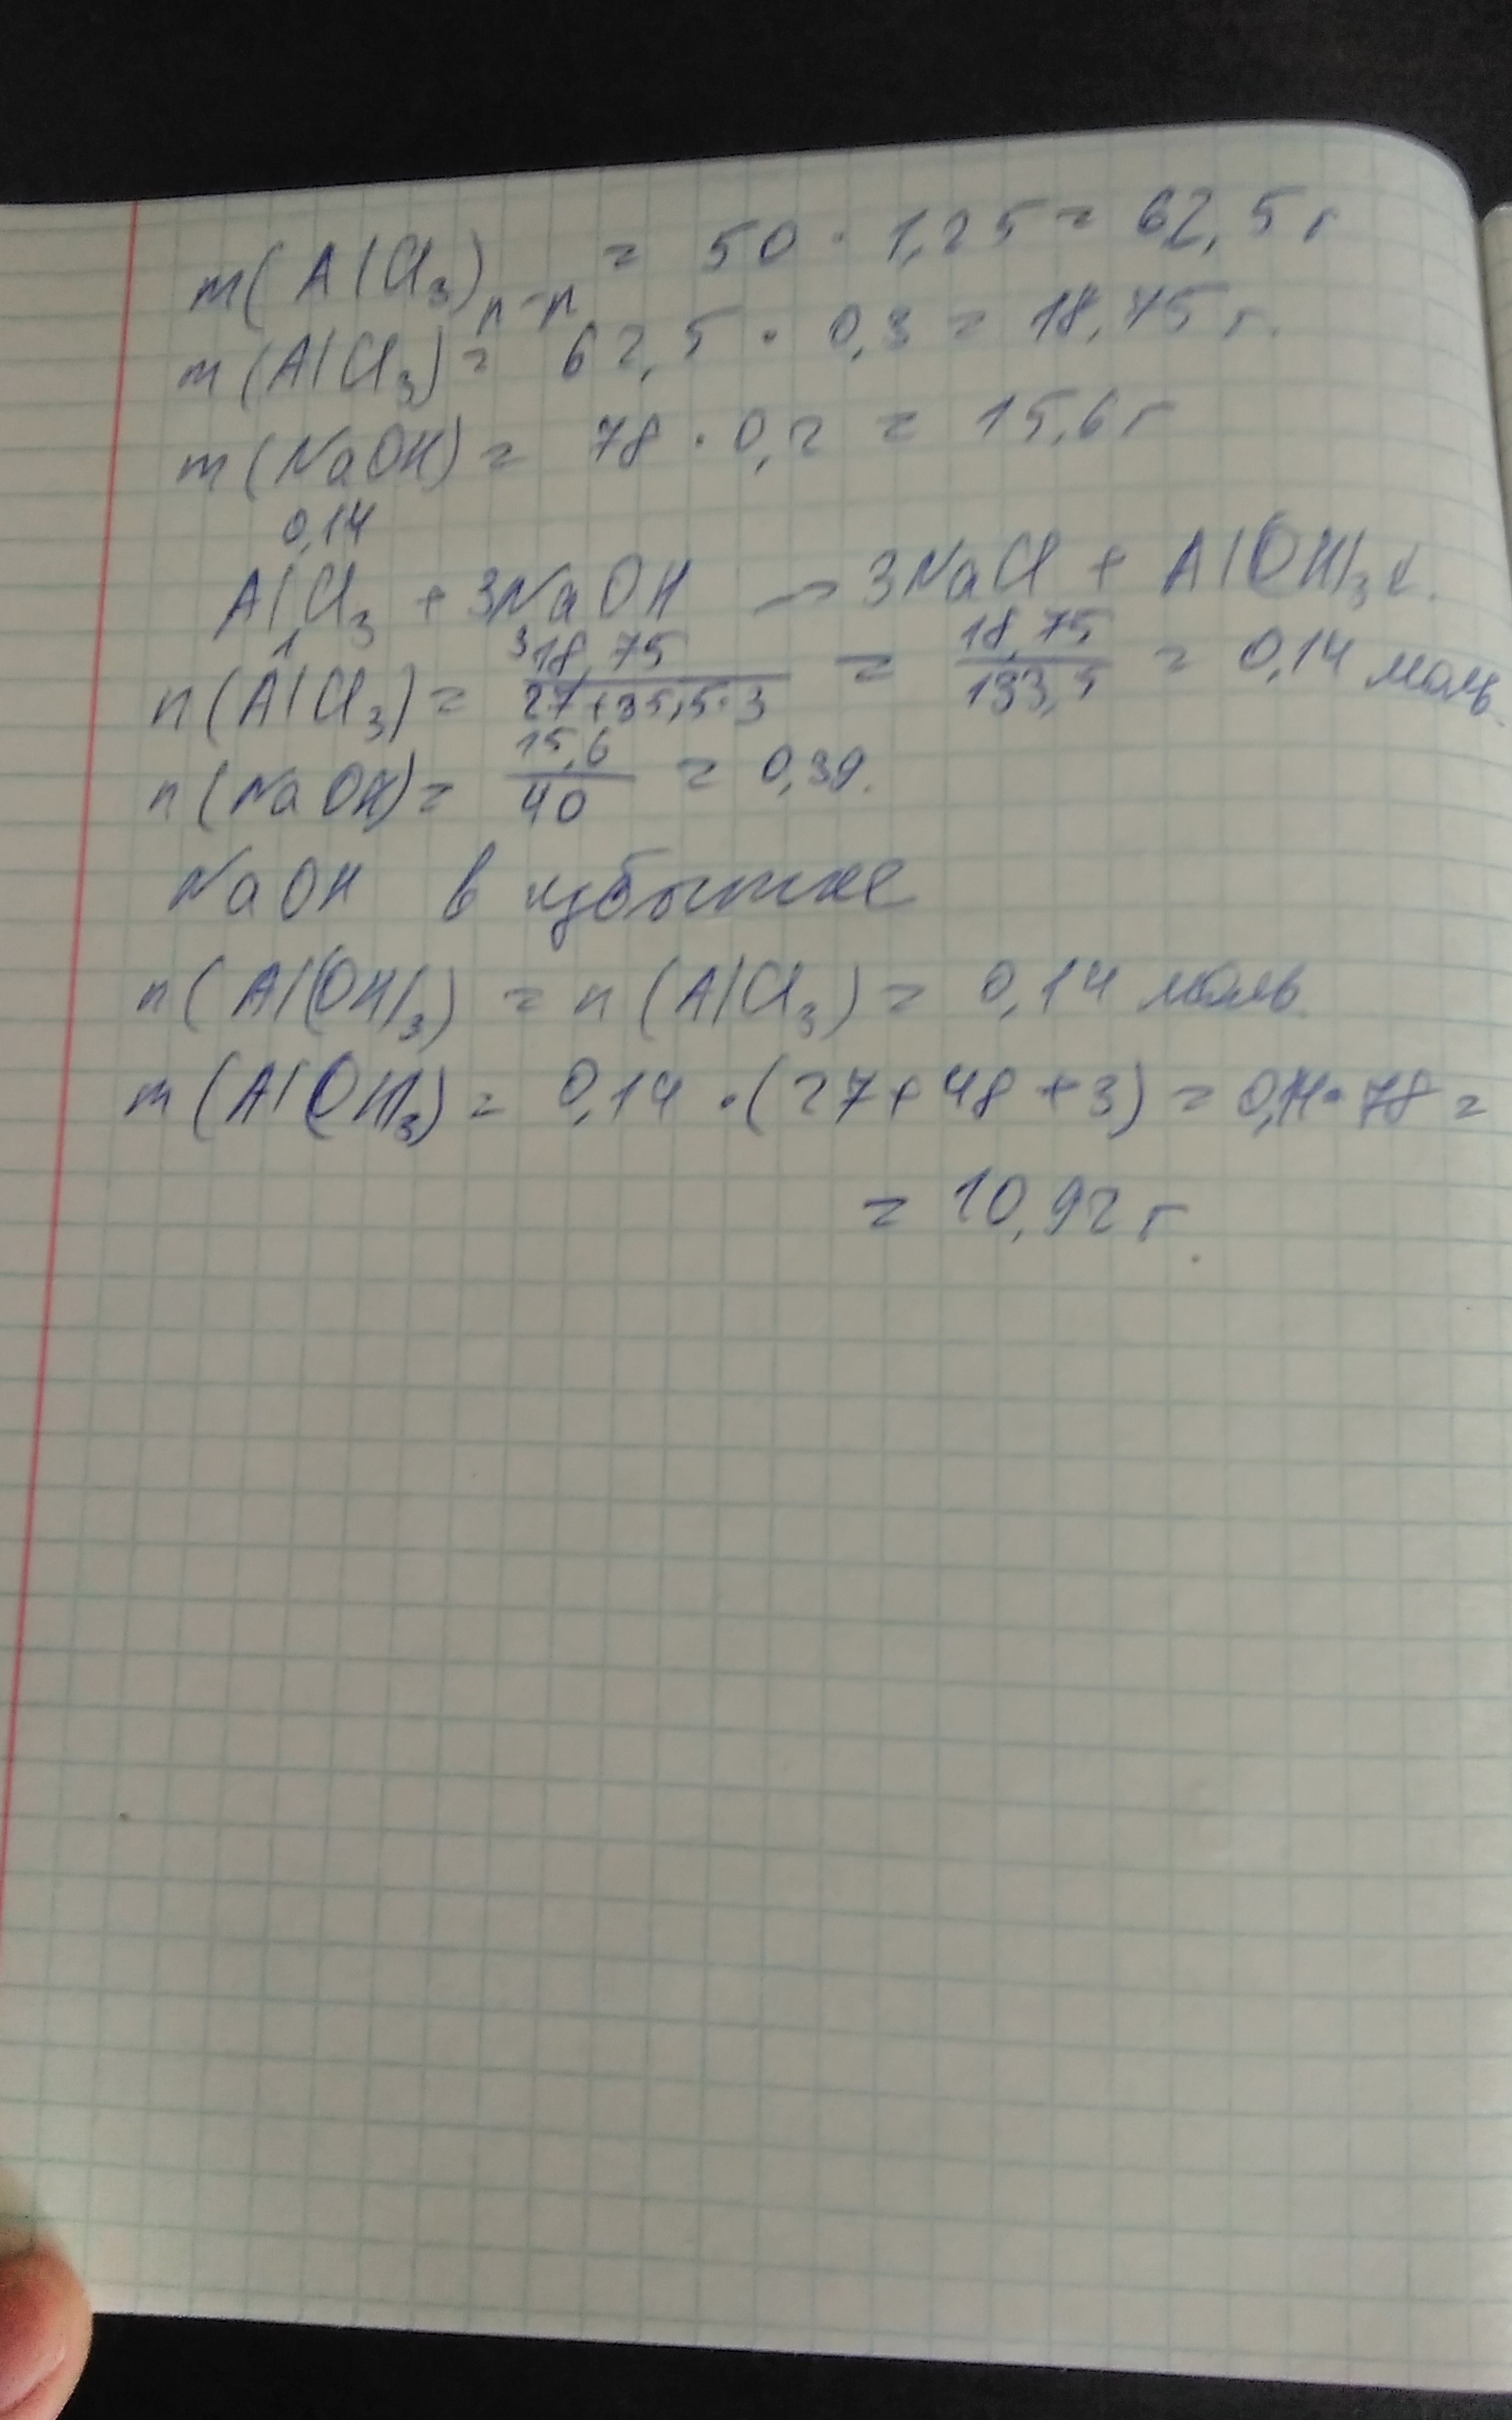 m(AlCl₃)р-р = 50 · 1,25 = 62,5 г
m(AlCl₃) = 62,5 · 0,3 = 18,75 г.
m(NaOH) = 78 · 0,2 = 15,6 г
0,14
AlCl₃ + 3NaOH → 3NaCl + Al(OH)₃↓.
1 3
n(AlCl₃) = 18,75/(27+35,5·3) = 18,75/133,5 = 0,14 моль.
n(NaOH) = 15,6/40 = 0,39.
NaOH в избытке
n(Al(OH)₃) = n(AlCl₃) = 0,14 моль.
m(Al(OH)₃) = 0,14 · (27+48+3) = 0,14·78 =
= 10,92 г.